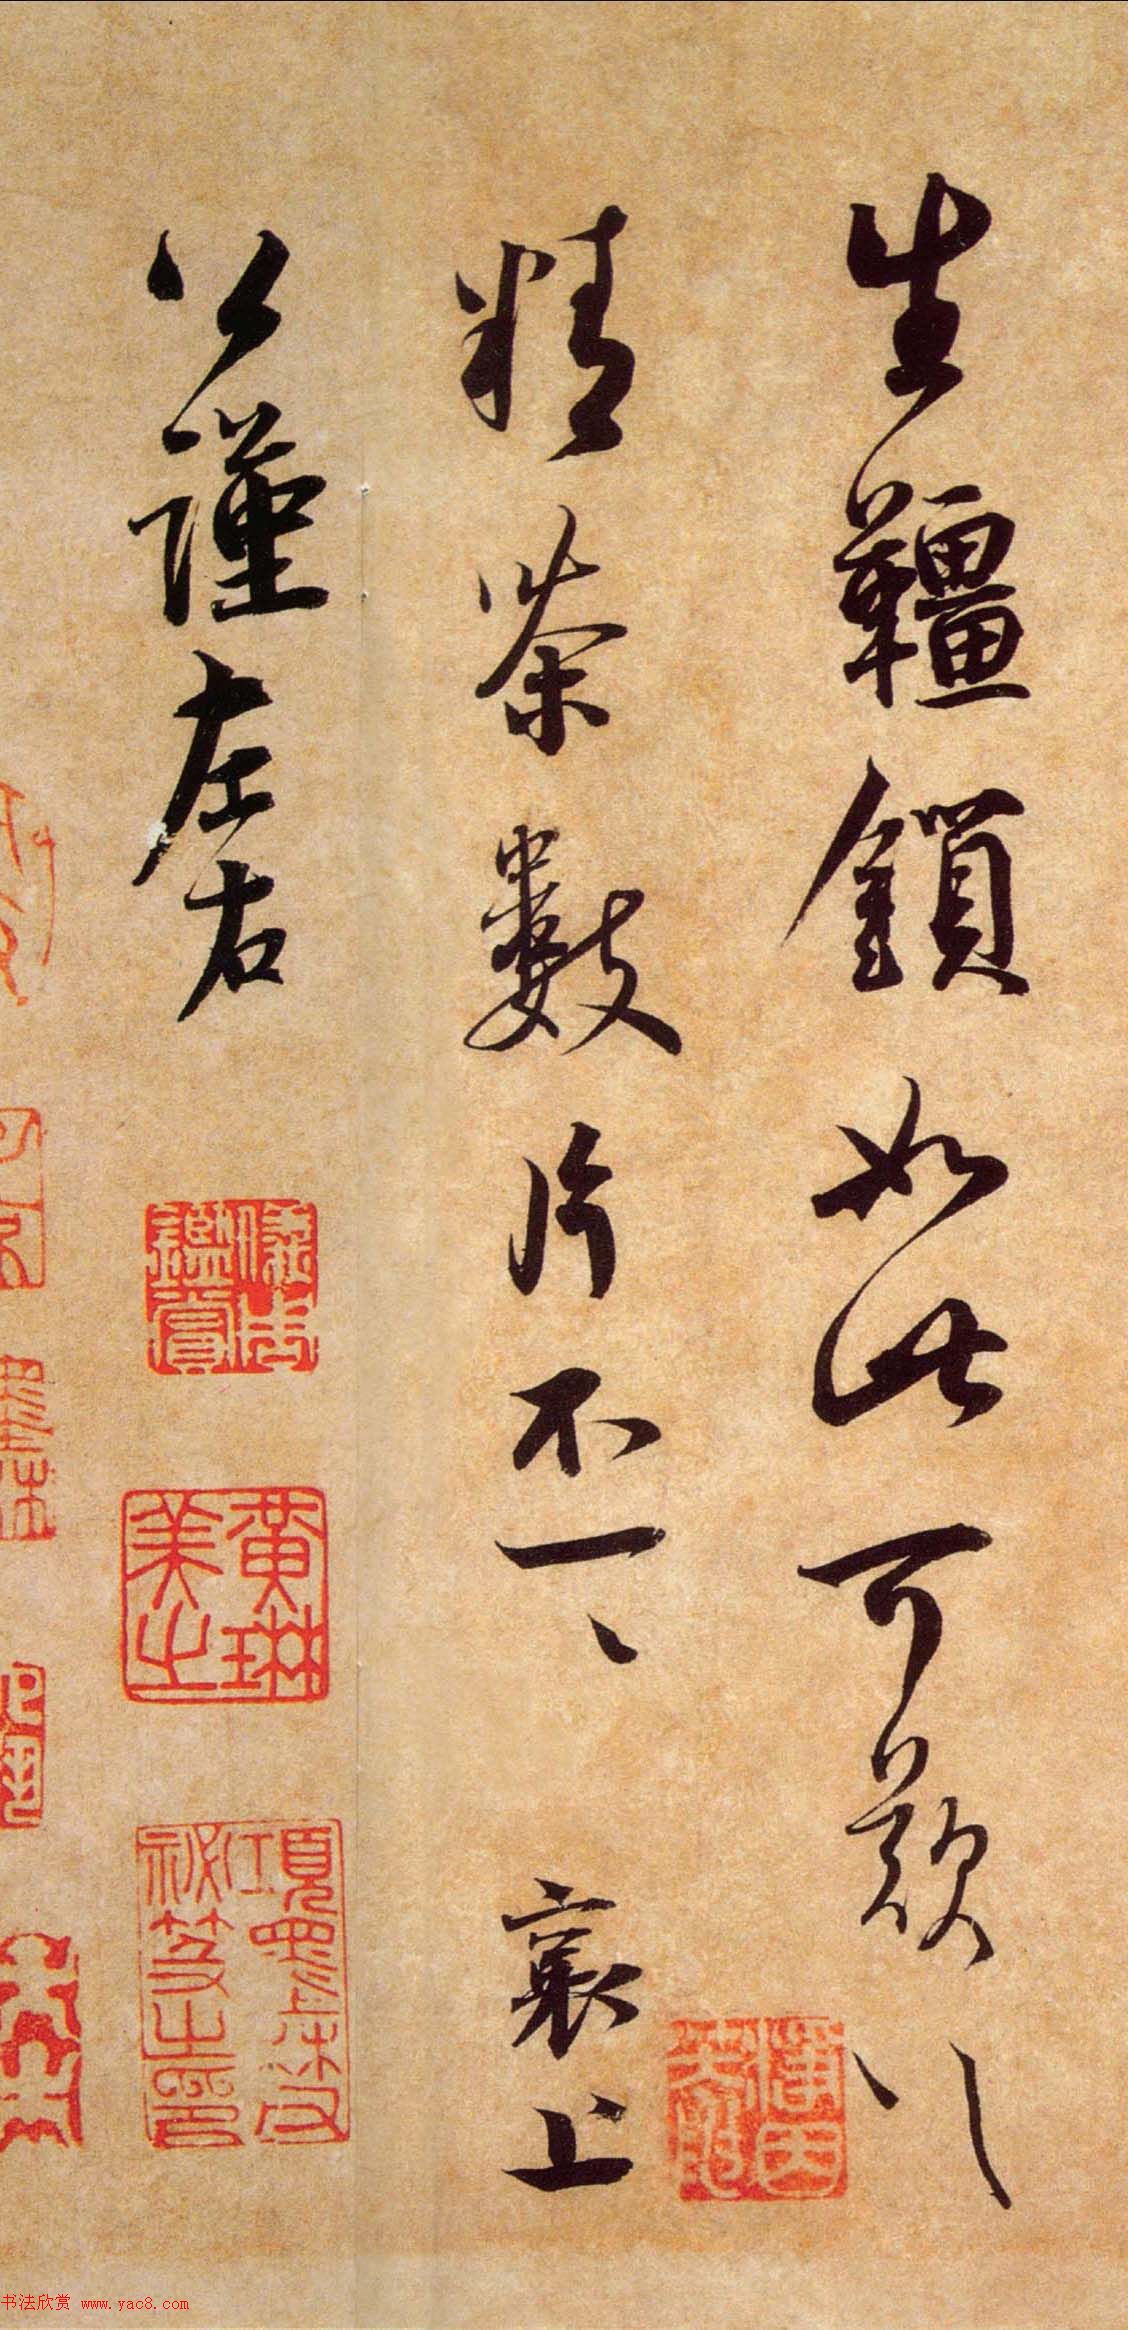 生韁鎖如此可歎〻
精茶數片不一〻 襄上
公謹左右
儀周鑑賞
黃琳美之
項墨林父秘笈之印
书法欣赏 www.yac8.com